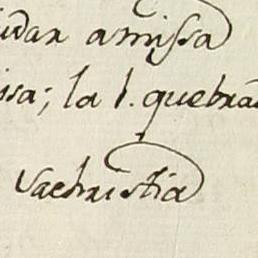 idar amissa
issa; la l. quebra
Sachristia